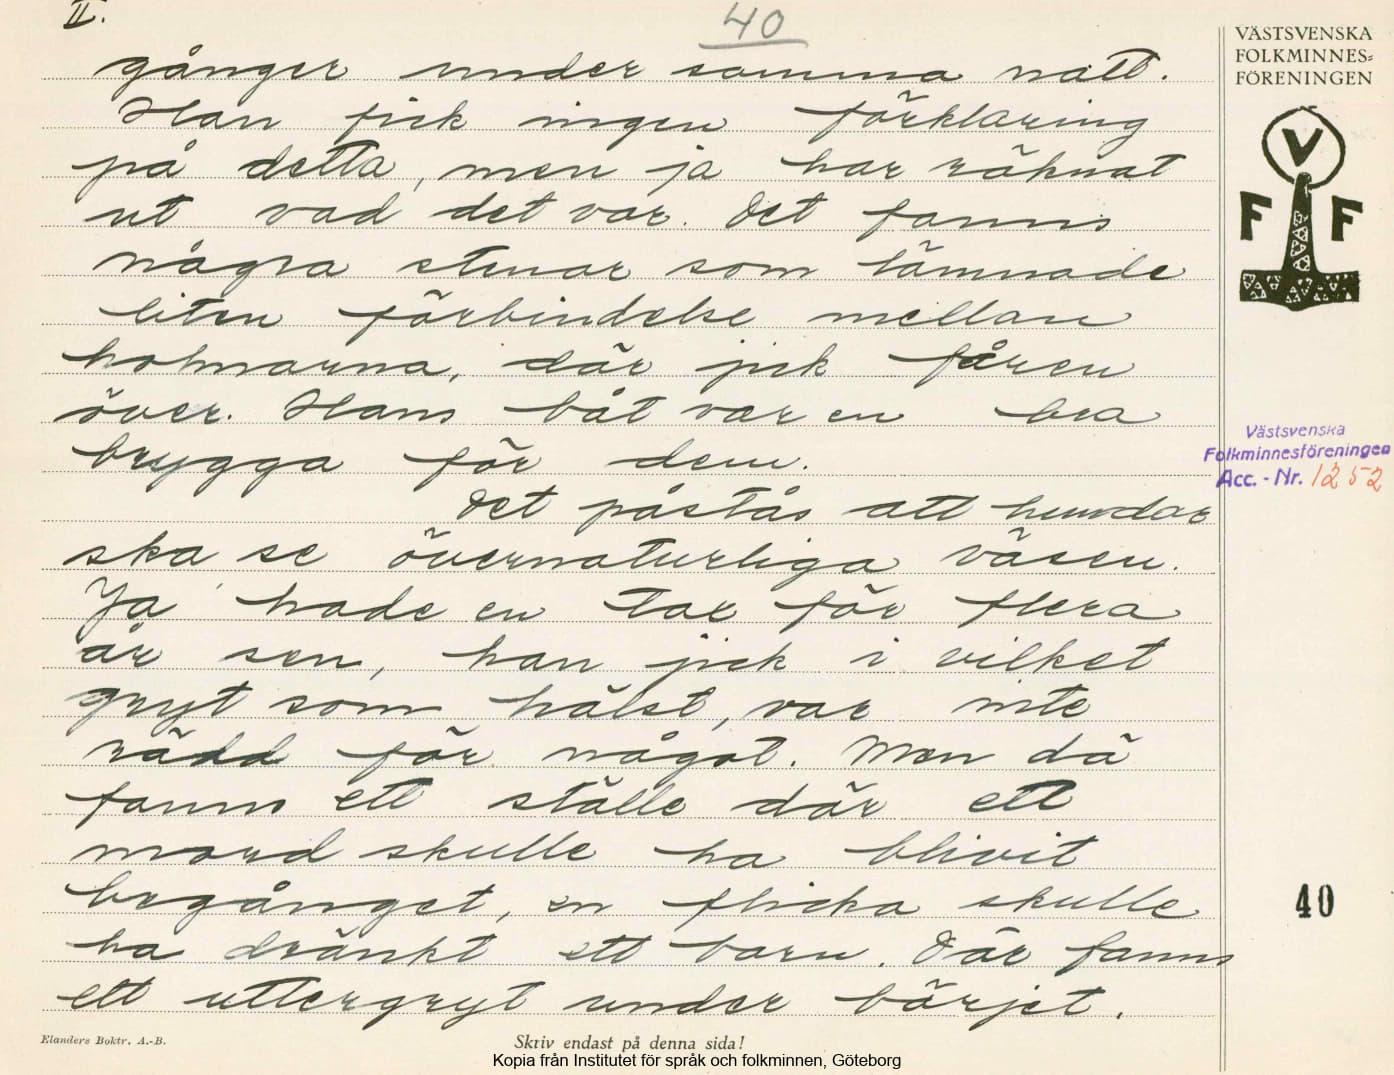 II.
40
gånger under samma natt.
Han fick ingen förklaring
på detta, men ja har räknat
ut vad det var. Det fanns
några stenar som lämnade
liten förbindelse mellan
holmarna, där jick fåren
över. Hans båt var en bra
brygga för dem.
Det påstås att hundar
ska se övernaturliga väsen.
Ja hade en tax för flera
år sen, han jick i vilket
gryt som hälst, var inte
rädd för något. Men då
fanns ett ställe där ett
mord skulle ha blivit
begånget, en flicka skulle
ha dränkt ett barn. Där fanns
ett uttergryt under bärjet.
VÄSTSVENSKA
FOLKMINNES=
FÖRENINGEN
V
F F
Västsvenska
Folkminnesföreningen
Acc. - Nr. 1252
40
Elanders Boktr. A.-B.
Skriv endast på denna sida!
Kopia från Institutet för språk och folkminnen, Göteborg